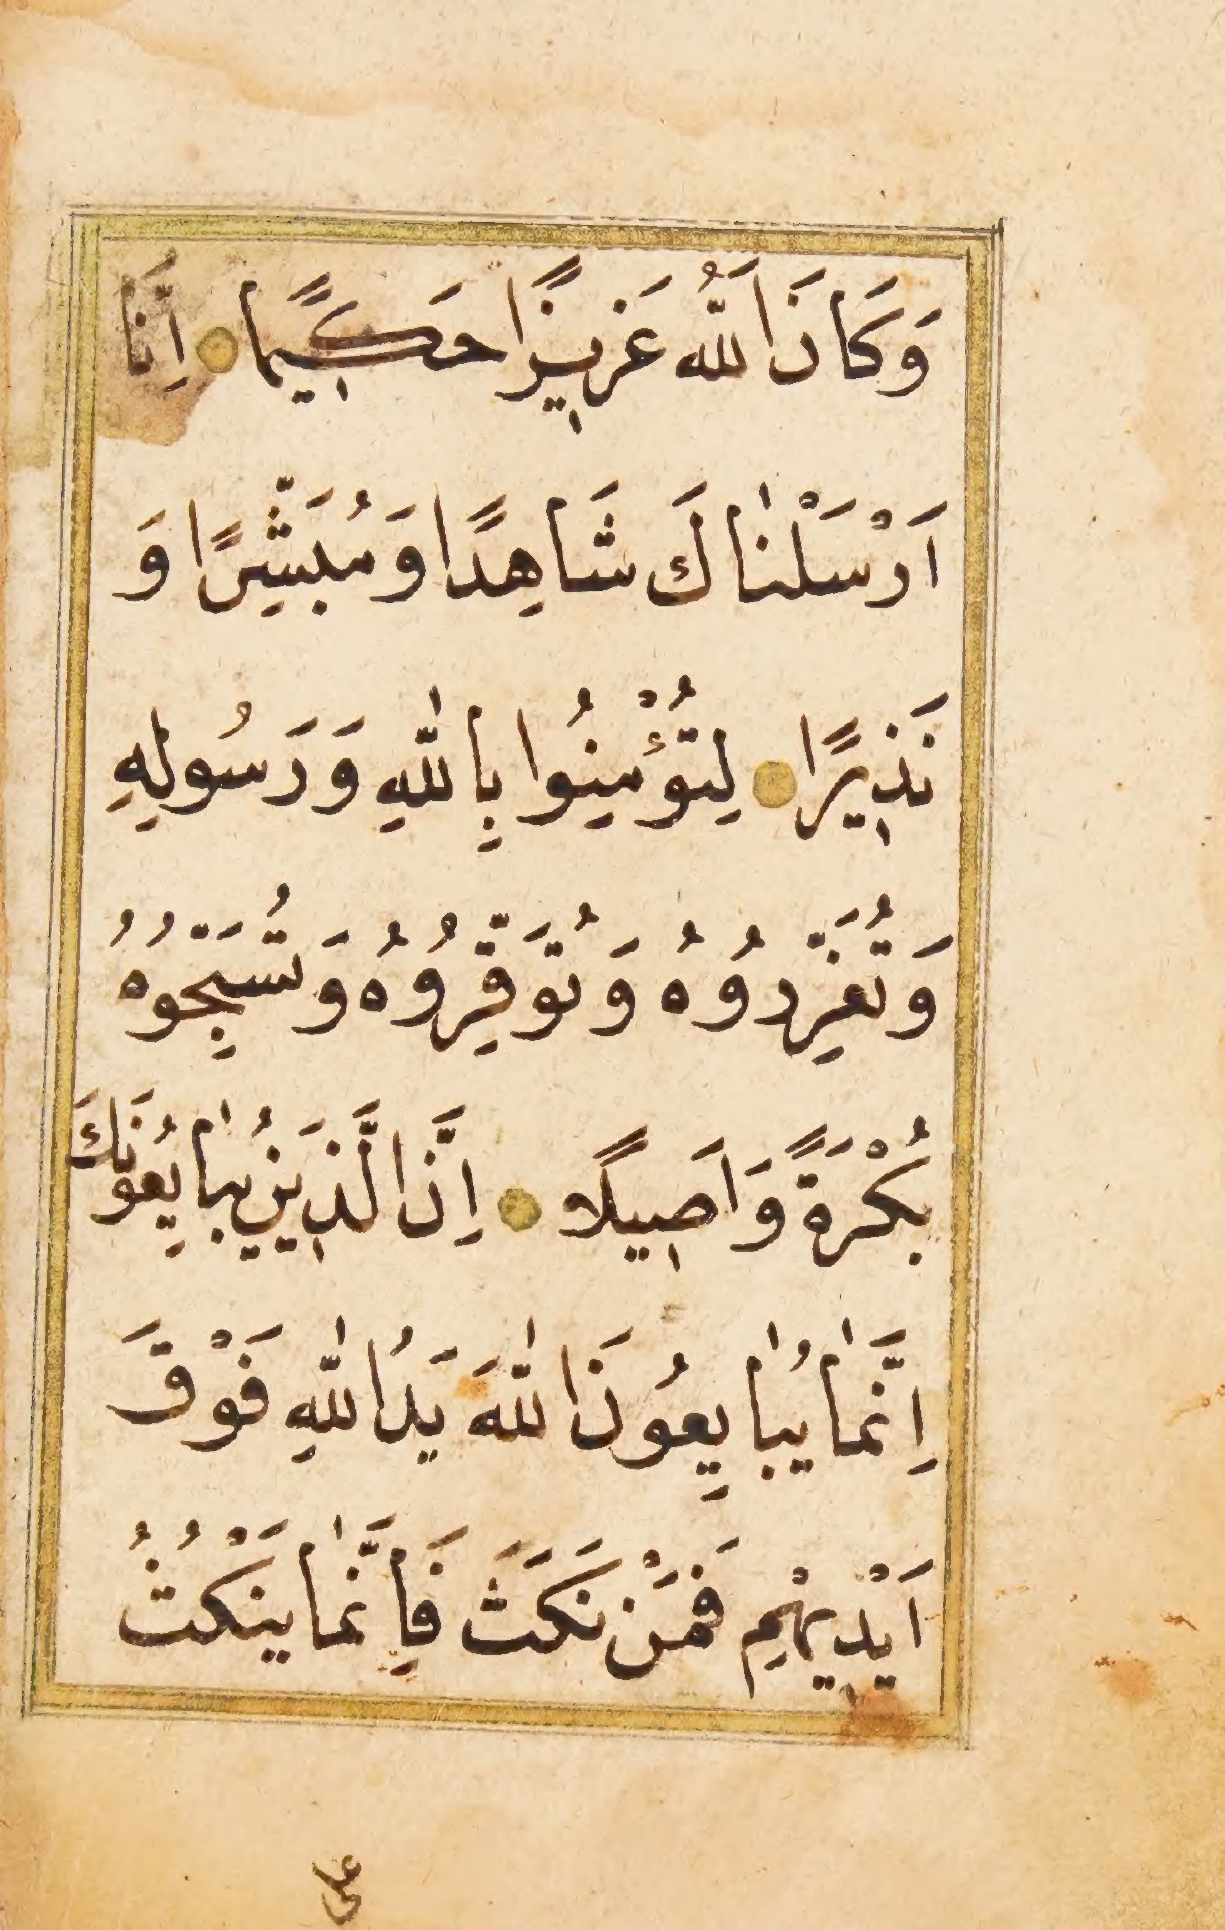 وَكَانَ اللّٰهُ عَزِيزًا حَكِيمًا اِنَّا
اَرْسَلْنٰاكَ شَاهِدًا وَمُبَشِّرًا وَ
نَذِيرًا لِتُؤْمِنُوا بِاللّٰهِ وَرَسُولِهِ
وَتُعَزِّرُوهُ وَتُوَقِّرُوهُ وَتُسَبِّحُوهُ
بُكْرَةً وَاَصِيلًا اِنَّ الَّذِينَ يُبٰايِعُونَكَ
اِنَّمٰا يُبٰايِعُونَ اللّٰهَ يَدُ اللّٰهِ فَوْقَ
اَيْدِيهِمْ فَمَنْ نَكَثَ فَاِنَّمٰا يَنْكُثُ
على